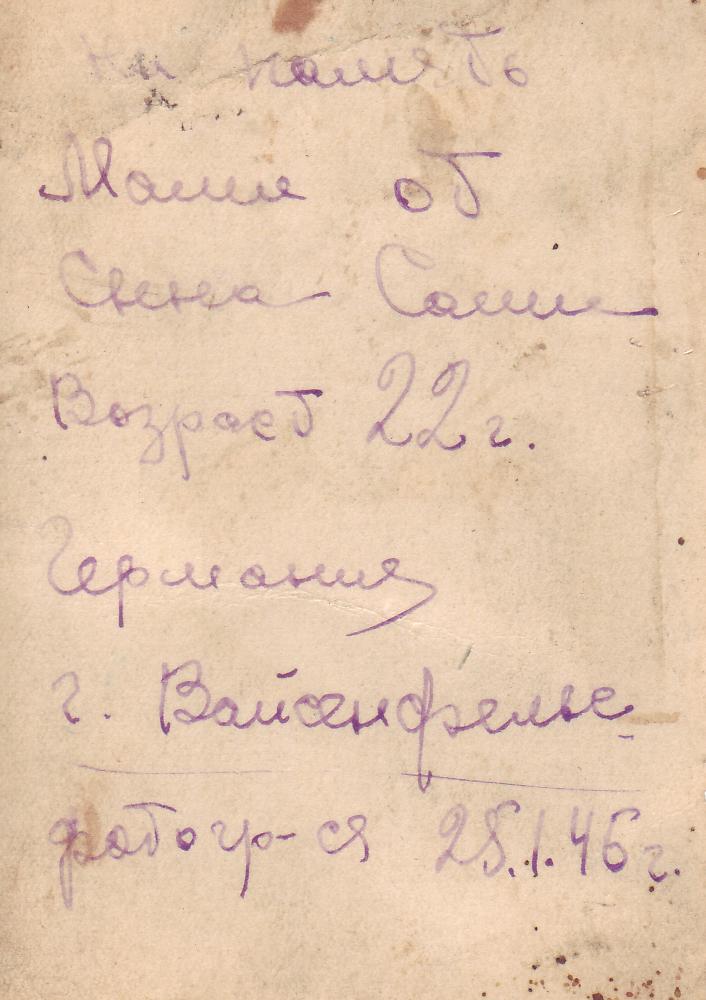 На память
Маме от
Сына Саши
Возраст 22 г.
Германия
г. Вайсенфельс
фотогр-ся 25.1.46 г.